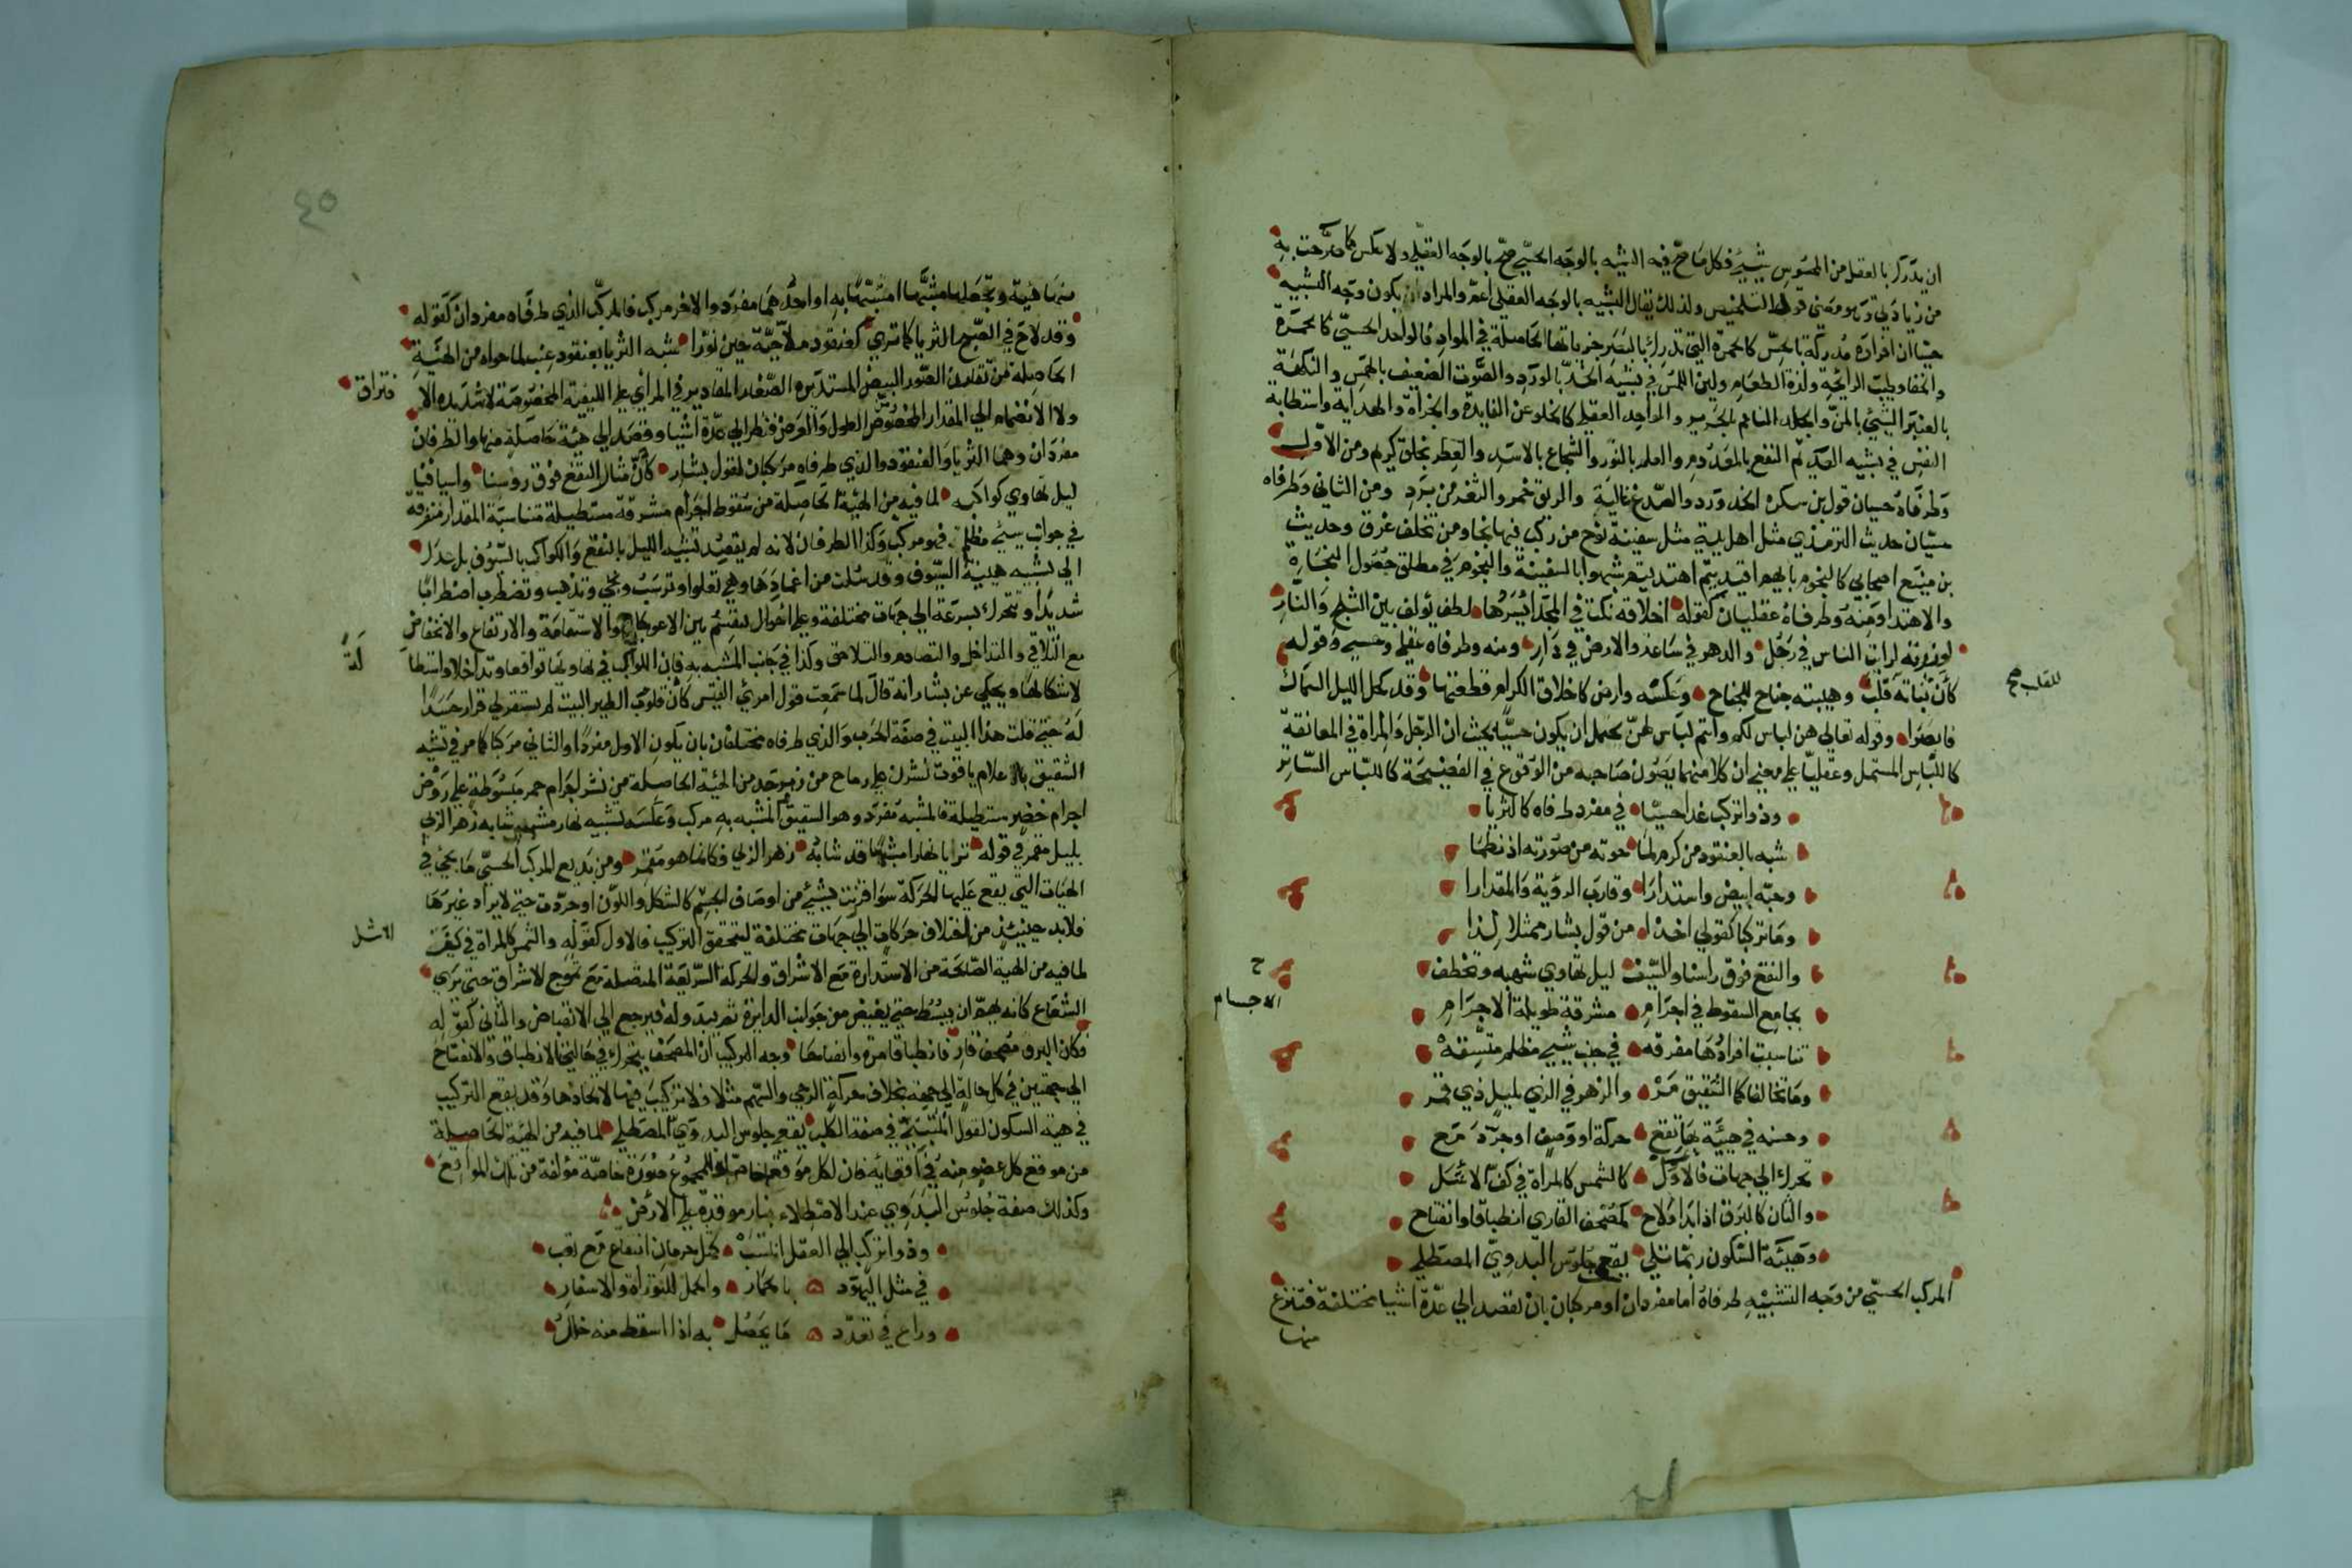 ان يدرك بالعقل من المحسوس شيئ فكل ما صح فيه التشبيه بالوجه الحسي صح بالوجه العقلي ولا عكس كما صرحت به
من زيادتي وهو معنى قول التلخيص ولذلك يقال التشبيه بالوجه العقلي اعم والمراد ان يكون وجه التشبيه
حسيا ان افراده مدركة بالحس كالحمرة التي تدرك بالبصر جزياتها الحاصلة في المواد فالواحد الحسي كالحمرة
والخفا وطيب الرائحة ولذة الطعام ولين اللمس في تشبيه الخد بالورد والصوت الضعيف بالهمس والنكهة
بالعنبر الشيئ بالمن والجلد الناعم بالحرير والواحد العقلي كالخلو عن الفايدة والجراة والهداية واستطابة
النفس في تشبيه العديم النفع بالمعدوم والعلم بالنور والشجاع بالاسد والعطر بخلق كريم ومن الاول
وطرفاه حسيان قول بن سكرة الخد ورد والصدغ غالية والريق خمر والثغر من برد ومن الثاني وطرفاه
حسيان حديث الترمذي مثل اهل بيتي مثل سفينة نوح من ركب فيها نجا ومن تخلف غرق وحديث
بن منيع اصحابي كالنجوم بايهم اقتديتم اهتديتم شبهوا بالسفينة والنجوم في مطلق حصول النجاة
والاهتدا ومنه وطرفاه عقليان كقوله اخلاقه نكت في المجد ايسرها لطف يؤلف بين الثلج والنار
لو زرته لرايت الناس في رجل والدهر في ساعة والارض في دار ومنه وطرفاه عقلي وحسي وقوله
كان ثباته قلب وهيبته جناح للجناح وعكسه وارض كاخلاق الكرام قطعتها وقد كحل الليل السماك
للقلب صح
فابصرا وقوله تعالى هن لباس لكم وانتم لباس لهن يحتمل ان يكون حسيا بحيث ان الرجل والمراة في المعانقة
كاللباس المشتمل وعقليا على معنى ان كلا منهما يصون صاحبه من الوقوع في الفضيحة كاللباس الساتر
وذو اتركب غدا حسيا في مفرد طرفاه كالثريا
شبه بالعنقود من كرم لما حوته من صورته اذ نظما
وحبه ابيض واستدارا وقارب الروية والمقدارا
وما تركبا كقولي اخذا من قول بشار ممثلا لذا
والنقع فوق راسنا والسيف ليل تهاوي شهبه وتخطف
بجامع السقوط في اجرام مشرقة طويلة الاجرام
ح
الاجسام
تناسبت افرادها مفرقه في جنب شيئ مظلم متسقه
وما تخالفا كالشقيق مر والزهر في الربي لميل ذي قمر
وحسنه في هيئة بها تقع حركة او وصف او جرد مع
تحرك الي جهات فالاول كالشمس كالمراة في كف الاشل
والثان كالبرق اذا بدا ولاح كمصحف القاري انطباقا وانفتاح
وهيئة السكون ربما تلي يقعي جلوس البدوي المصطلي
المركب الحسي من وجه التشبيه طرفاه اما مفردان او مركبان بان تقصد الي عدة اشيا مختلفة فتنزع
منها
٤٥
منها هيئة وتجعلها مشبها او مشبها به او احدهما مفرد والاخر مركب فالمركب الذي طرفاه مفردان كقوله
وقد لاح في الصبح الثريا كما تري كعنقود ملاحية حين نورا شبه الثريا بعنقود عنب لما حواه من الهيئة
الحاصلة من تقارن الصور البيض المستديرة الصغار المقادير في المراي علي الكيفية المخصوصة لا شديدة الا
فتراق
ولا الانضمام الي المقدار المخصوص الطول والعرض فنظر الي عدة اشيا وقصد الي هيئة حاصلة منها والطرفان
مفردان وهما الثريا والعنقود والذي طرفاه مركبان كقول بشار كان مثار النقع فوق روسنا واسيافنا
ليل تهاوي كواكبه لما فيه من الهيئة الحاصلة من سقوط اجرام مشرقة مستطيلة متناسبة المقدار متفرقة
في جوانب شيئ مظلم فهو مركب وكذا الطرفان لانه لم يقصد تشبيه الليل بالنقع والكواكب بالسيوف بل عدل
الي تشبيه هيئة السيوف وقد سلت من اغمادها وهي تعلوا وترسب وتجي وتذهب وتضطرب اضطرابا
شديدا وتتحرك بسرعة الي جهات مختلفة وعلي احوال تنقسم بين الاعوجاج والاستقامة والارتفاع والانخفاض
مع التلاقي والتداخل والتصادم والتلاحق وكذا في جانب المشبه به فان الكواكب في تهاويها تواقعا وتداخلا واستطا
لة
لاشكالها ويحكي عن بشار انه قال لما سمعت قول امرئ القيس كان قلوب الطير البيت لم يستقر لي قرار حسدا
له حتي قلت هذا البيت في صفة الحرب والذي طرفاه مختلفان بان يكون الاول مفردا والثاني مركبا كما مر في تشبيه
الشقيق بالاعلام ياقوت نشرن علي رماح من زبرجد من الهيئة الحاصلة من نشر اجرام حمر مبسوطة علي روض
اجرام خضر مستطيلة فالمشبه مفرد وهو الشقيق والمشبه به مركب وعكسه تشبيه نهار مشمس شابه زهر الربي
بليل مقمر في قوله تريا نهارا مشمسا قد شابه زهر الربي فكانما هو مقمر ومن بديع المركب الحسي ما يجئ في
الهيات التي يقع عليها الحركة سوا قرنت بشيئ من اوصاف الجسم كالشكل واللون او جردت حتي لا يراد غيرها
فلا بد حينيذ من اختلاف حركات الي جهات مختلفة ليتحقق التركيب فالاول كقوله والشمس كالمراة في كف
الاشل
لما فيه من الهيئة الحاصلة من الاستدارة مع الاشراق والحركة السريعة المتصلة مع تموج الاشراق حتي تري
الشعاع كانه يهم ان يبسط حتي يفيض من جوانب الدايرة ثم يبدو له فيرجع الي الانقباض والثاني كقوله
وكان البرق مصحف قار فانطباقا مرة وانفتاحا وجه التركيب ان المصحف يتحرك في حالتي الانطباق والانفتاح
الي جهتين في كل حالة الي جهة بخلاف حركة الرحي والسهم مثلا فلا تركيب فيها لاتحادها وقد يقع التركيب
في هيئة السكون كقول المتنبي في صفة الكلب يقعي جلوس البدوي المصطلي لما فيه من الهيئة الحاصلة
من موقع كل عضو منه في اقعايه فان لكل موقع خاص والمجموع صورة خاصة مؤلفة من تلك المواقع
وكذلك صفة جلوس البدوي عند الاصطلاء بنار موقدة علي الارض
وذو اتركب الي العقل انتسب كمثل حرمان انتفاع مع تعب
في مثل اليهود بالحمار والحمل للتوراة والاسفار
وراع في تعدد ما يحصل به اذا اسقط منه خلل